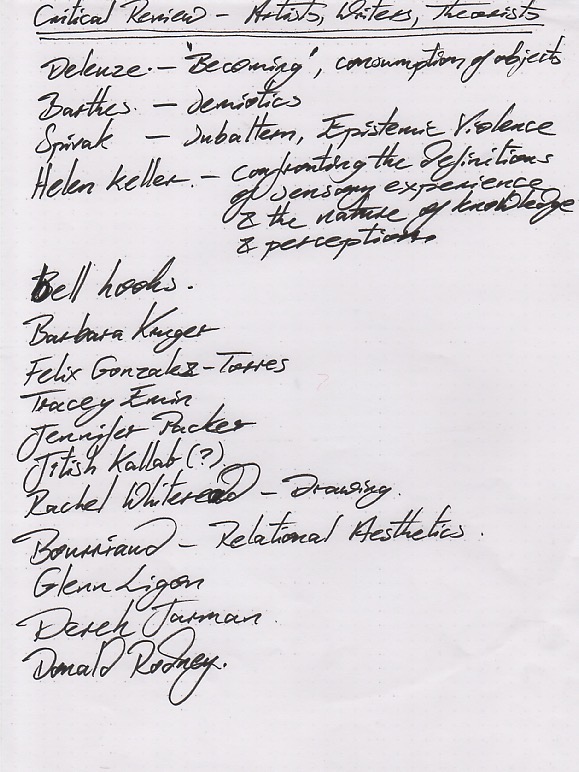 Critical Review – Artists, Writers, Theorists
Deleuze. – "Becoming", consumption of objects
Barthes. – Semiotics
Spivak – Subaltern, Epistemic Violence
Helen Keller. – confronting the definitions
of sensory experience
& the nature of knowledge
& perception.
Bell hooks.
Barbara Kruger
Felix Gonzalez-Torres
Tracey Emin
Jennifer Packer
Jitish Kallab (?)
Rachel Whiteread – Drawing.
Bourriaud – Relational Aesthetics.
Glenn Ligon
Derek Jarman.
Donald Rodney.